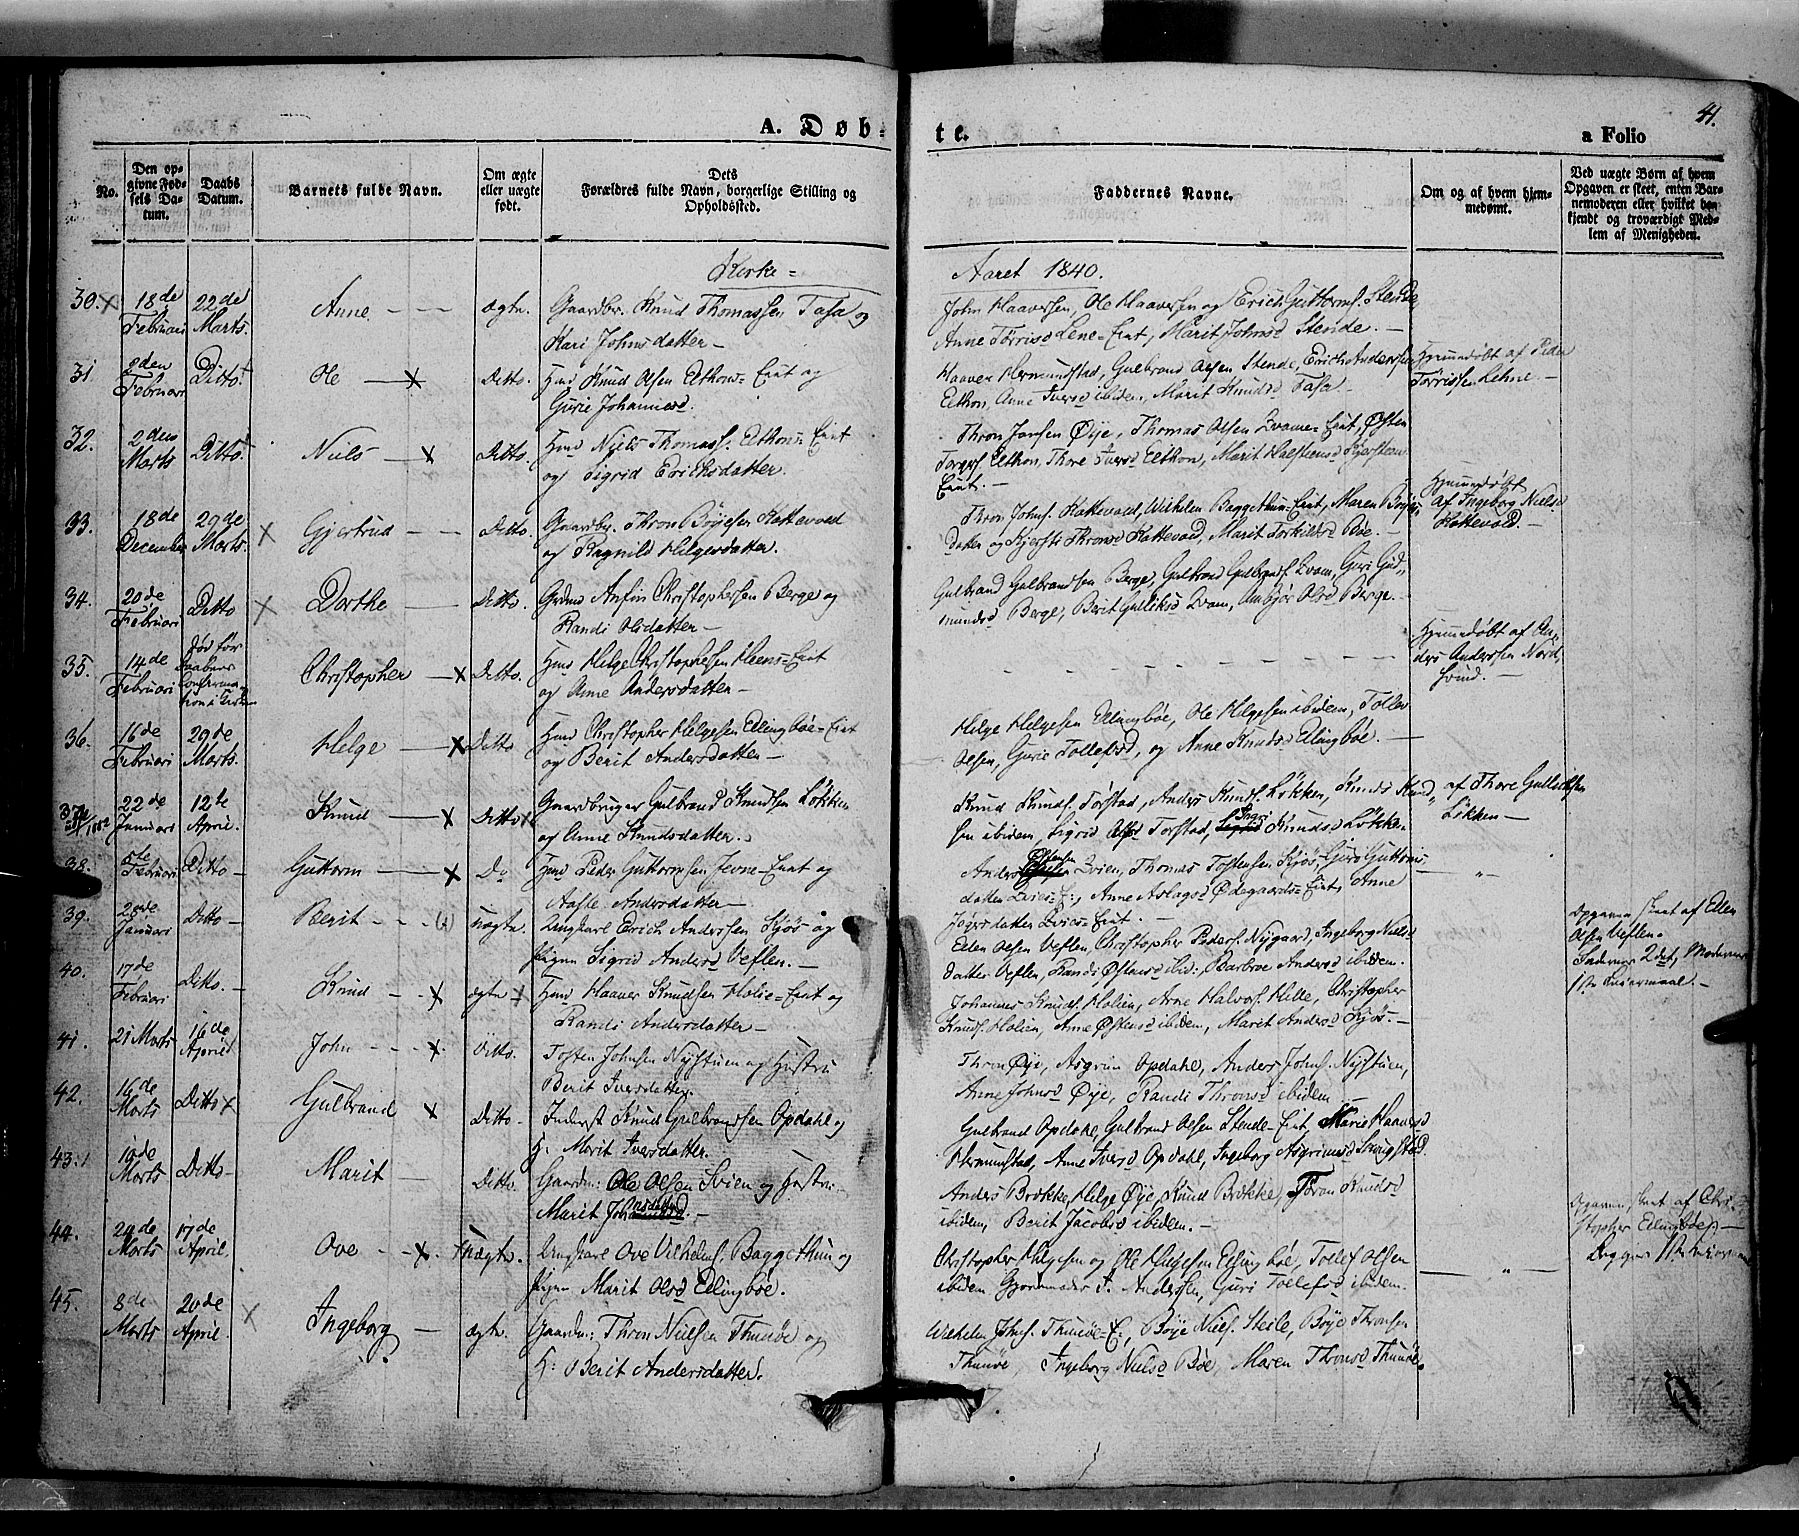 A. Døb-
te.
a Folio
41.
No.
Den op-
givne Fød-
sels Da-
tum.
Daabs
Datum.
Barnets fulde Navn.
Om ægte
eller uægte
født.
Dets
Forældres fulde Navn, borgerlige Stilling og
Opholdssted.
Faddernes Navne.
Om og af hvem hjem-
medøbt.
Ved uægte Børn af hvem
Opgaven er skeet, enten Bar-
nemoderen eller hvilket be-
kjendt og troværdigt Med-
lem af Menigheden.
Kirke =
Aaret 1840.
30. x 18de Februari 22de Marts. Anne. ægte. Gaardbr. Knud Thomassen Tasa og
Kari Johnsdatter –
John Haaversen, Ole Haaversen og Erich Guttorms. Stende,
Anne Torrisd Lene-Eiet, Marit Johnsd Stende. –
31 Februari Ditto. Ole x Ditto. Knud Olsen Elthons-Eiet og
Gurie Johannesd.
Haaver Hermundstad, Gulbrand Olsen Stende, Erich Andersen
Elthon, Anne Iversd ibidem, Marit Knudsd Tasa –
Hjemmedøbt af Peder
Torrissen Lehne. –
32. 2den Marts Ditto. Niels x Ditto. Niels Thomass. Elthons Eiet
og Sigrid Erichsdatter.
Thron Jansen Øye, Thomas Olsen Qvame-Eiet, Østen
Elthon, Thore Iversd Elthon, Marit
Eiet. –
33. 18de December 29de Marts. x Gjertrud Ditto. Gaardbr. Thron Bøyesen Hattevold
og Ragnild Helgesdatter.
Thron Johns. Kattevold, Wilhelm Baggethun-Eiet, Maren
datter og Kjersti Thronsd Kattevold, Marit Torkildsd Bøe. –
Hjemmedøbt
af Ingeborg Nielsd
Kattevold. –
34. 20de Februari Ditto x Dorthe Ditto. Anfin Christophersen Berge og
Randi Olsdatter –
Gulbrand Gulbrandsen Berge, Gulbrand Gulbrands. Qvam, Guri Gud-
mundsd Berge, Berit Gulliksd Qvam, Ambjør Olsd Berge. –
35. 14de Februari Død før
Christopher x Ditto. Helge Christophersen Heens-Eiet
og Anne Andersdatter –
Hjemmedøbt af An-
ders Andersen Nord-
36. 16de Februari 29de Marts. Helge x Ditto Christopher Helgesen Ellingbøe-Eiet
og Berit Andersdatter –
Helge Helgesen Ellingbøe, Ole Helgesen ibidem, Tollef
Olsen, Gurie Tollefsd, og Anne Knudsd Ellingbøe. –
37 22de Januari 12te April. Knud x Ditto Gaardbruger Gulbrand Knudsen Løkken
og Anne Knudsdatter.
Knud Knuds. Torstad, Anders Knuds. Løkken, Knud
sen ibidem, Sigrid Torstad, Knudsd Løkken.
af Thore Gulliksen
Løkken –
38. 5te Februari Ditto – Guttorm x Do Peder Guttormsen Jevne-Eiet og
Andersdatter –
Anders Østensen Qvien, Thomas Tostensen Kjøs, Guri Guttorms-
datter Anne Aslagsd Ødegaards-Eiet, Anne
39. Januari Ditto – Berit uægte. Ungkarl Erich Andersen Kjøs og
Pigen Sigrid Andersd Veflen. –
Eden Olsen Veflen, Christopher Peders. Nygaard, Ingeborg Niels-
datter Veflen, Randi Østensd ibid: Barbroe Andersd ibidem.
Opgaven skeet af Eden
Olsen Veflen.
Faderens 2det, Moderens
1ste Leiermaal –
40. 17de Februari Ditto. – Knud x ægte Haaver Knudsen Holie-Eiet og
Randi Andersdatter –
Johannes Knuds. Holien, Arne Halvors. Helle, Christopher
Knuds. Holien, Anne Østensd ibidem, Marit Andersd Kjøs. –
41. 21 Marts 16de April John x Ditto. Tosten Johnsen Nystuen og Hustru
Berit Iversdatter.
Thron Øye, Asgrim Opdahl, Anders Johns. Nystuen,
Anne Johnsd Øye, Randi Thronsd ibidem. –
42. 16de Marts Ditto x Gulbrand x Ditto. Inderst Knud Gulbrandsen Opdahl og
H. Marit Iversdatter.
Gulbrand Opdahl, Gulbrand Olsen Stende-Eiet, Marie Haaversd
Hermundstad, Anne Iversd Opdahl, Ingeborg Asgrimsd
43. Marts Ditto – Marit Ditto. Gaardm: Ole Olsen Qvien og Hustru
Marit
Anders Brække, Helge Øye, Knud Brække, Knudsd
ibidem, Berit Jacobsd ibidem. –
44. 24de Marts 17de April. Ove x Uægte. Ungkarl Ove Vilhelms. Baggethun og
Pigen Marit Olsd Ellingbøe.
Christopher Helgesen og Ole Helgesen Ellingbøe, Tollef Olsen
ibidem Gjordemoder Andersen, Guri Tollefsd ibidem.
Opgaven skeet af Chri-
stopher Ellingbøe. –
Begges 1ste Leiermaal
45. 8de Marts 20de April. x Ingeborg ægte. Gaardm: Thron Nielsen Thunøe og
H: Berit Andersdatter.
Wilhelm Johns. Thunøe-E., Bøye Niels. Steile, Bøye Thronsen
Thunøe, Ingeborg Nielsd Bøe, Maren Thronsd Thunøe.